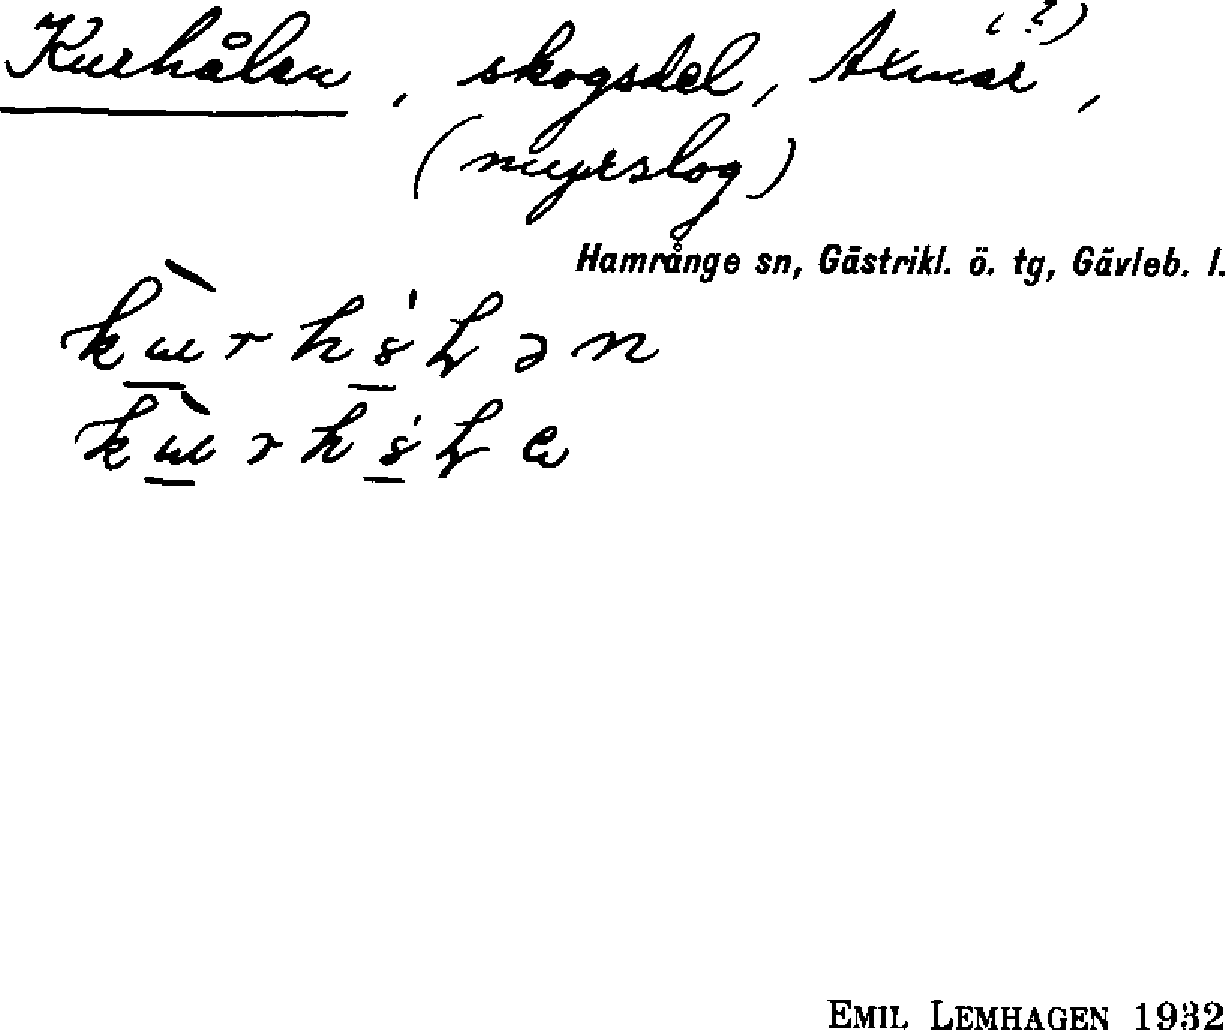 Kurhålen, skogsdel, Axmar (?),
(myrslog)
Hamrånge sn, Gästrikl. ö. tg, Gävleb. l.
EMIL LEMHAGEN 1932